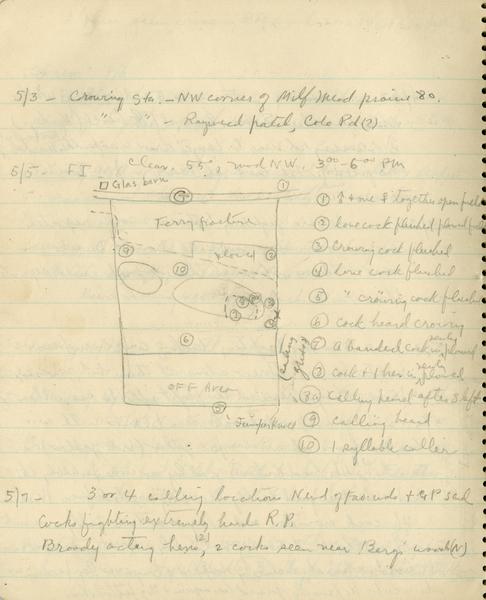 5/3 - Crowing Sta. - NW corner of Milf Mead prairie 80.
" " - Ragweed patch, Colo Pd (?)
5/5 FI Clear. 55°, mod NW. 3:00-6:00 PM
Glas barn ① ① ♂ + one ♀ together open
Ferry pasture ② lone cock flushed plowed
③ Crowing cock flushed
plowed ④ lone cock flushed
⑨ ⑩ ⑤ " crowing cock flushed
⑥ cock heard crowing
⑥ ⑦ a banded cock in newly plowed
⑧ cock + 1 hen in newly plowed
OFF Area ⑧a calling heard after 8 left
⑤ ⑨ calling heard
⑩ 1 syllable caller
5/7 - 3 or 4 calling locations N end of + GP
Cocks fighting extremely hard R.P.
Broody acting hens (2), 2 cocks seen near Bergs woods (N)